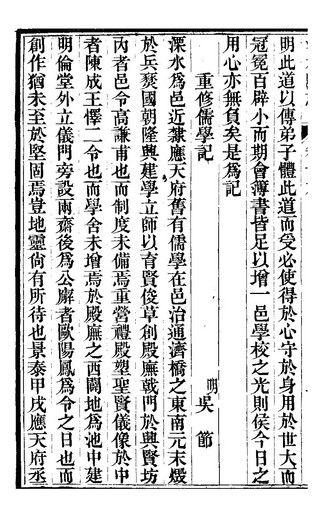 明此道以傳弟子體此道而受必使得於心守於身用於世大而
冠冕百辟小而期會薄書皆足以增一邑學校之光則侯今日之
用心亦無負矣是為記
重修儒學記
明吳節
溧水為邑近隸應天府舊有儒學在邑治通濟橋之東南元末燬
於兵燹國朝隆興建學立師以育賢俊草創殿廡戟門於興賢坊
內者邑令高謙甫也而制度未備焉重營禮殿塑聖賢儀像於中
者陳成王懌二令也而學舍未增焉於殿廡之西闢地為池中建
明倫堂外立儀門旁設兩齋後為公廨者歐陽鳳為令之日也而
創作猶未至於堅固焉豈地靈尚有所待也景泰甲戌應天府丞